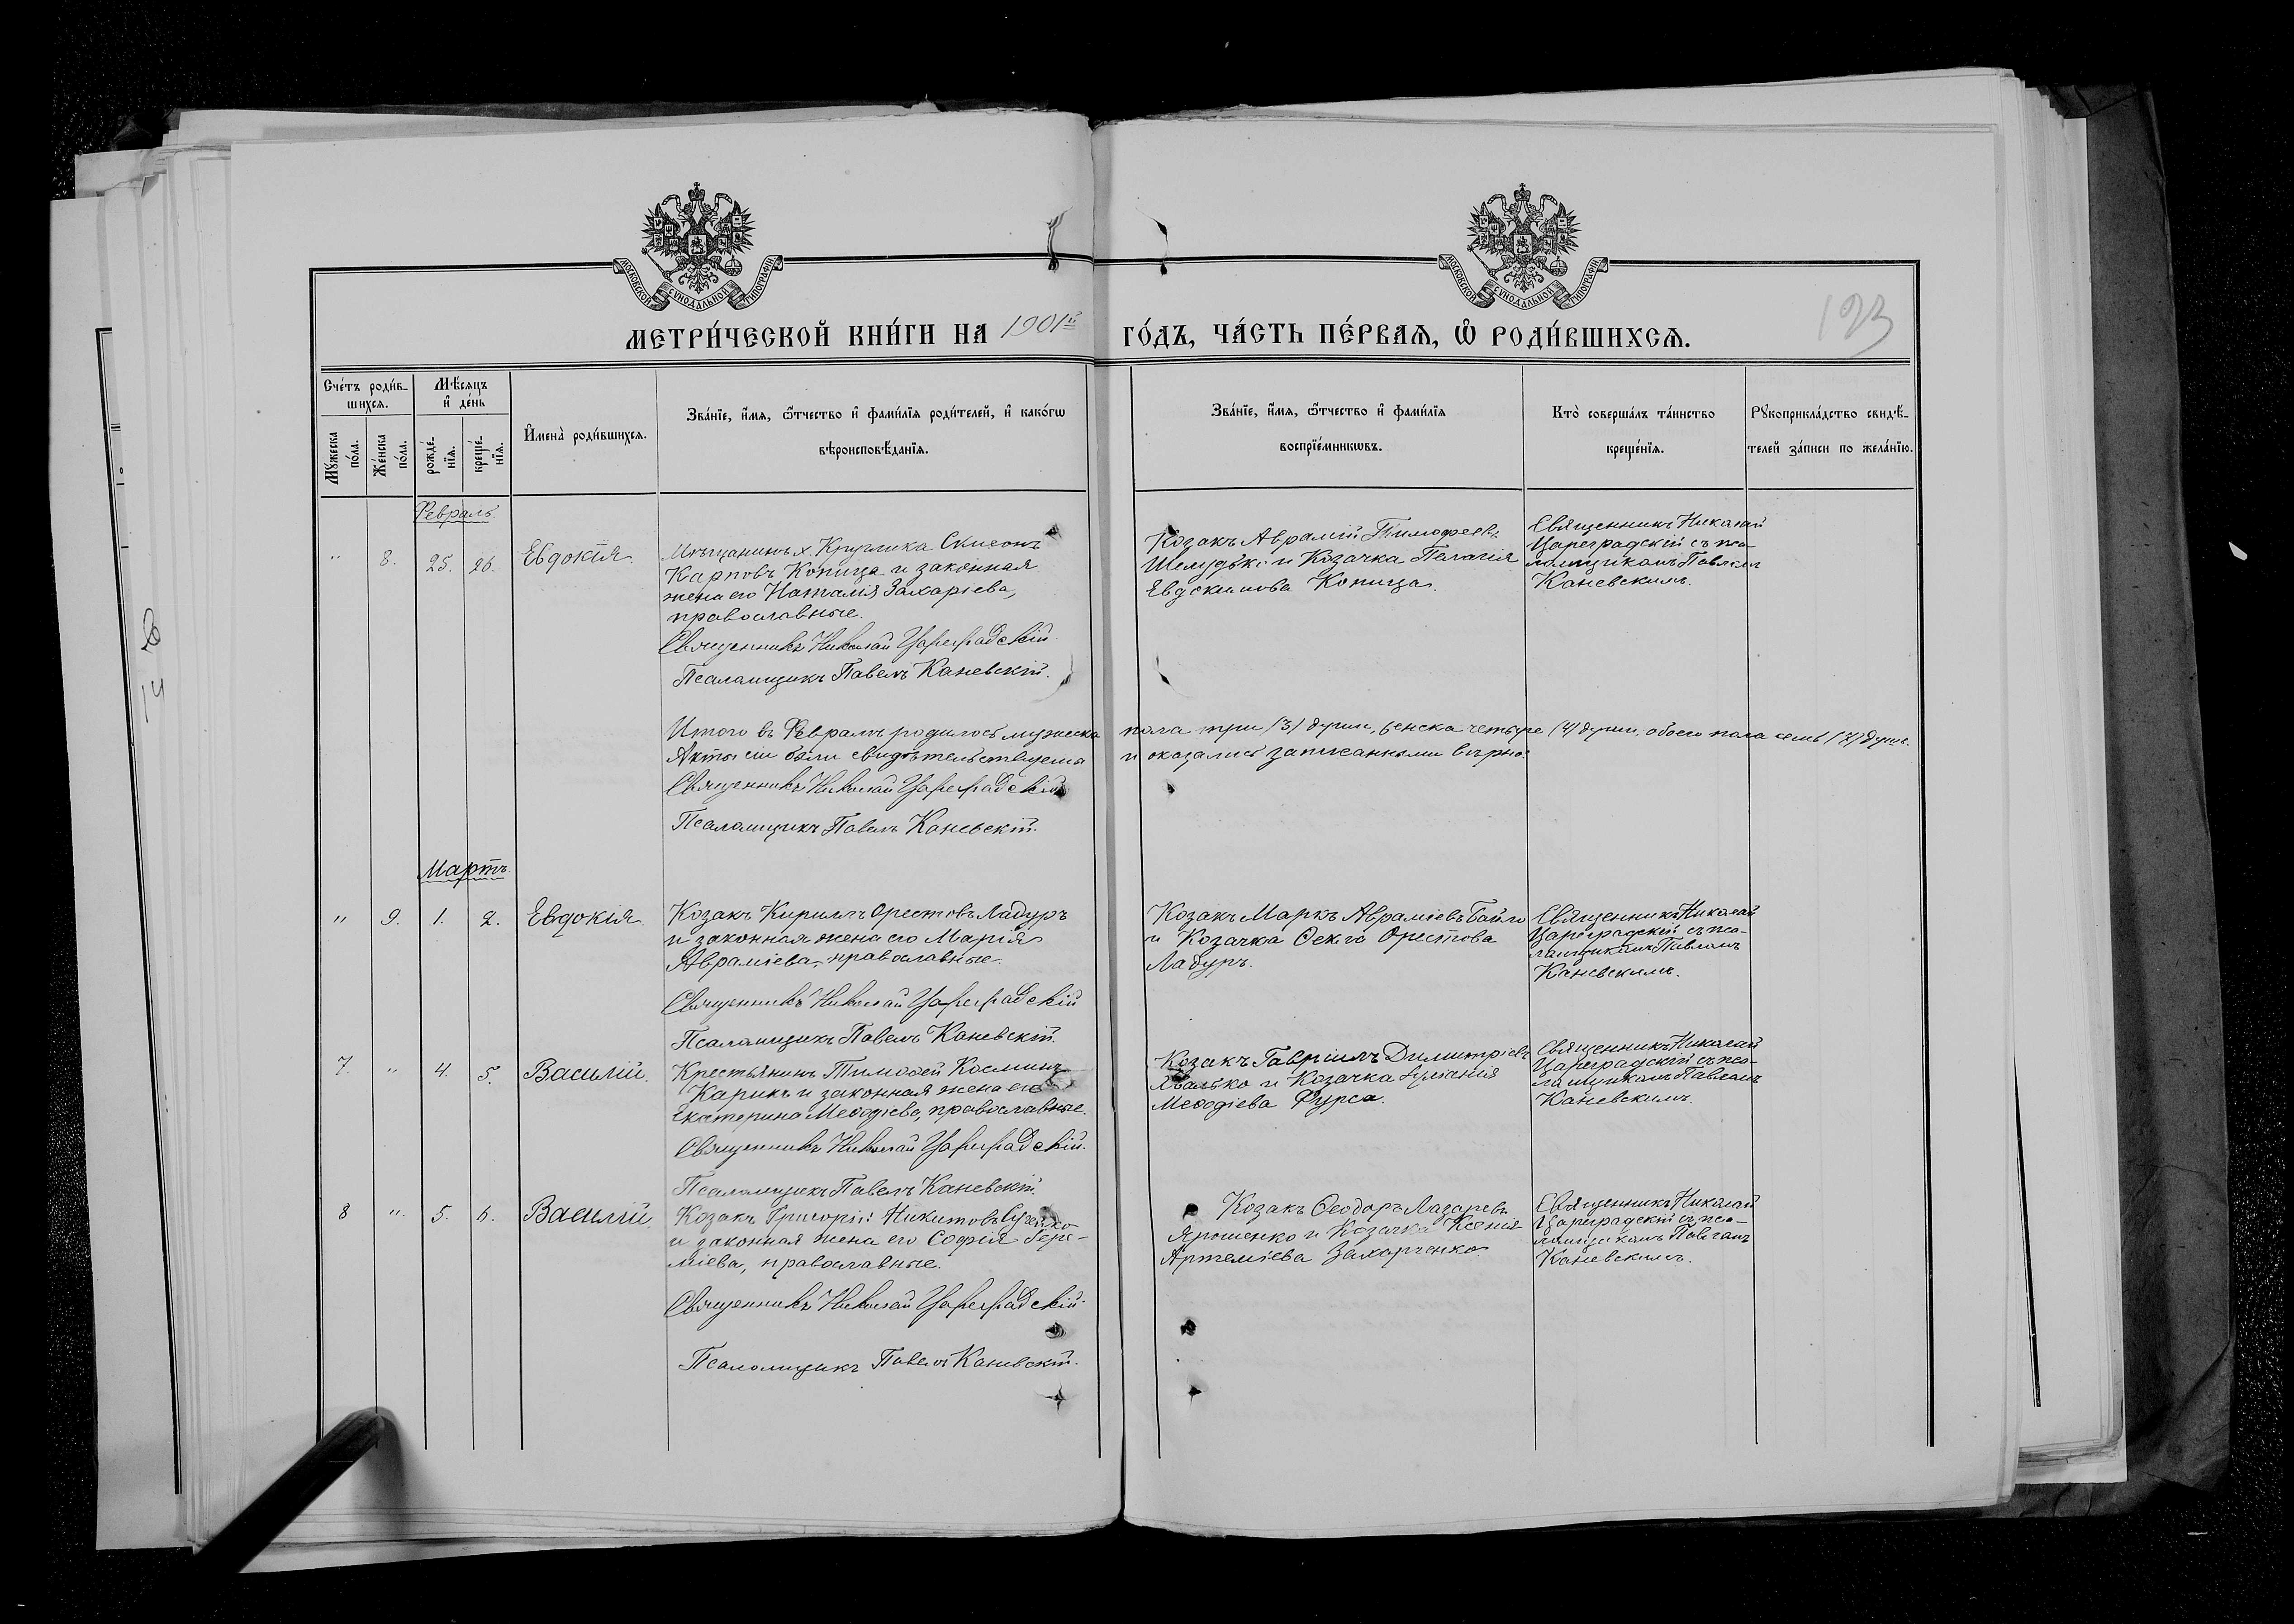 МОСКОВСКОЙ СѴНОДАЛЬНОЙ ТИПОГРАФІИ
МОСКОВСКОЙ СѴНОДАЛЬНОЙ ТИПОГРАФІИ
123
МЕТРИ́ЧЕСКОЙ КНИ́ГИ НА 1901й ГО́ДЪ, ЧА́СТЬ ПЕ́РВАѦ, Ѡ҆ РОДИ́ВШИХСѦ.
Сче́тъ роди́в-
шихсѧ.
Мѣ́сѧцъ
и҆ де́нь
Мꙋ́жеска
по́ла.
Же́нска
по́ла.
рожде́-
нїѧ.
креще́-
нїѧ.
И҆мена̀ роди́вшихсѧ.
Зва́нїе, и҆́мѧ, ѻ҆́тчество и҆ фами́лїѧ роди́телей, и҆ како́гѡ
вѣроисповѣ́данїѧ.
Зва́нїе, и҆́мѧ, ѻ҆́тчество и҆ фами́лїѧ
воспрїе́мникѡвъ.
Кто̀ соверша́лъ та́инство
креще́нїѧ.
Рꙋкоприкла́дство свидѣ́-
телей за́писи по жела́нїю.
Февраль.
" 8. 25. 26. Евдокія.
Мѣщанинъ х. Круглика
Карповъ Копица и законная
жена его Наталія Захаріева,
православные.
Священникъ Николай Цареградскій.
Псаломщикъ Павелъ Каневскій.
Козакъ Аврамій Тимофеевъ
и Козачка Пелагія
Евдокимова Копица.
Священникъ Николай
Цареградскій съ пса-
ломщикомъ Павломъ
Каневскимъ.
Итого въ Февралѣ родилось мужеска пола три (3) души, женска четыре (4) души, обоего пола семь (7) душъ.
Акты сіи были свидѣтельствуемы и оказались записанными вѣрно.
Священникъ Николай Цареградскій
Псаломщикъ Павелъ Каневскій.
Мартъ.
" 9. 1. 2. Евдокія
Козакъ Кириллъ Орестовъ Ладуръ
и законная жена его Марія
Авраміева, православные.
Священникъ Николай Цареградскій
Псаломщикъ Павелъ Каневскій.
Козакъ Маркъ Авраміевъ
и Козачка Орестова
Ладуръ.
Священникъ Николай
Цареградскій съ пса-
ломщикомъ Павломъ
Каневскимъ.
7. " 4. 5. Василій.
Крестьянинъ Тимоѳей Косминъ
Карикъ и законная жена его
Екатерина Меѳодіева, православные.
Священникъ Николай Цареградскій.
Псаломщикъ Павелъ Каневскій.
Козакъ Гавріилъ Димитріевъ
и Козачка
Меѳодіева Фурса.
Священникъ Николай
Цареградскій съ пса-
ломщикомъ Павломъ
Каневскимъ.
8 " 5. 6. Василій.
Козакъ Григорій Никитовъ
и законная жена его Софія Гере-
міева, православные.
Священникъ Николай Цареградскій.
Псаломщикъ Павелъ Каневскій.
Козакъ Ѳеодоръ Лазаревъ
Ярошенко и Козачка Ксенія
Артеміева Захарченко
Священникъ Николай
Цареградскій съ пса-
ломщикомъ Павломъ
Каневскимъ.